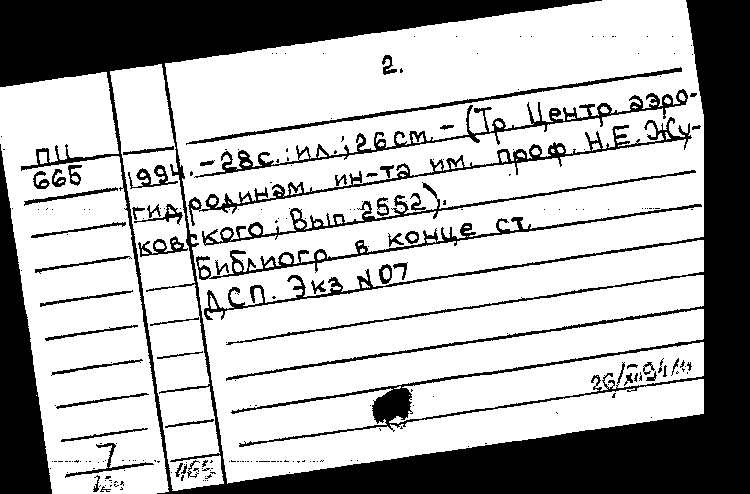 2.
ПЦ
665
1994. – 28 с. : ил. ; 26 см. – (Тр. Центр. аэро-
гидродинам. ин-та им. проф. Н.Е. Жу-
ковского ; Вып. 2552).
Библиогр. в конце ст.
ДСП. Экз N 07
7
465